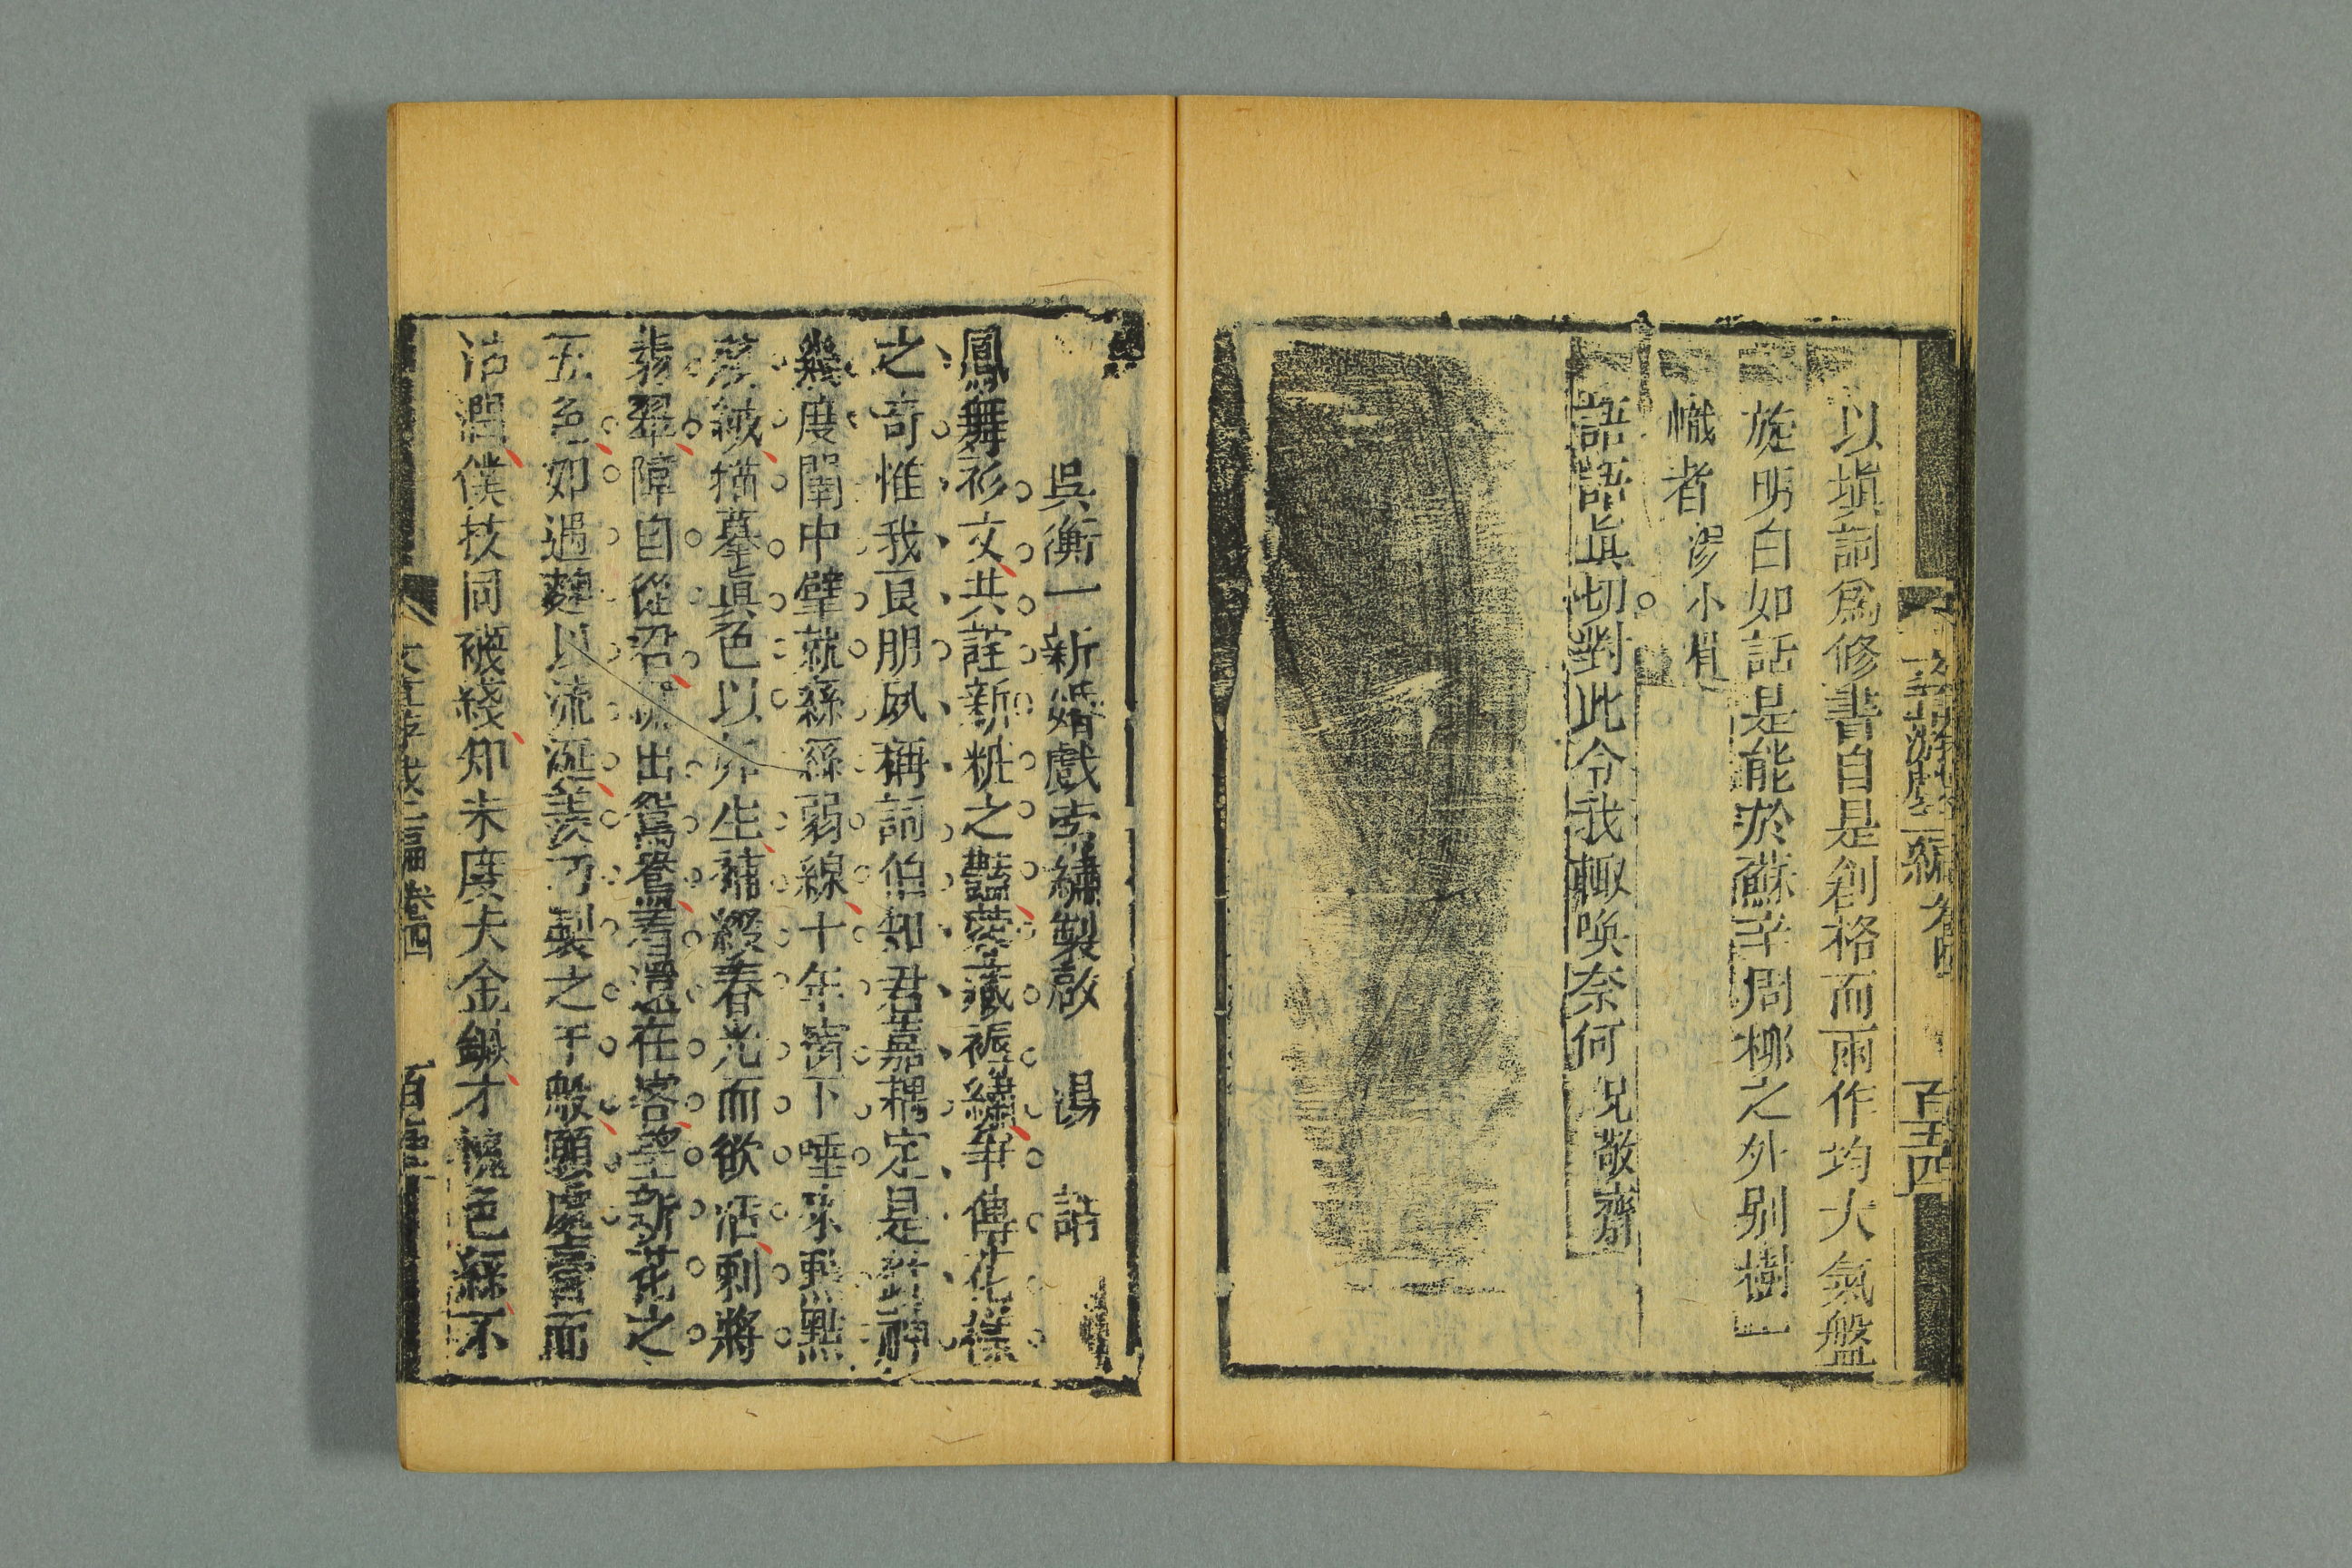 文章游戲二編 卷四 百五四
以塡詞爲修書自是創格而雨作均大氣盤
旋明白如話是能於蘇辛周柳之外别樹一
幟者 湯小眉
語語眞切對此令我輙喚奈何 兄敬齋
吳衡一新婚戲索繡製啟 湯 誥
鳳舞衫文共詫新粧之豔蓉藏裖繡爭傳花樣
之奇惟我良朋夙稱詞伯知君嘉耦定是針神
幾度閨中擘就絲絲弱線十年窗下唾來㸃㸃
殘絨描摹眞色以如生補綴春光而欲活剩將
翡翠障自從沼出鴛鴦看遲在客望新花之
五色如過麴以流涎羡巧製之千般願處膏而
沾潤僕技同襪綫知未度夫金鍼才愧色絲不
文章游戲二編 卷四 百五